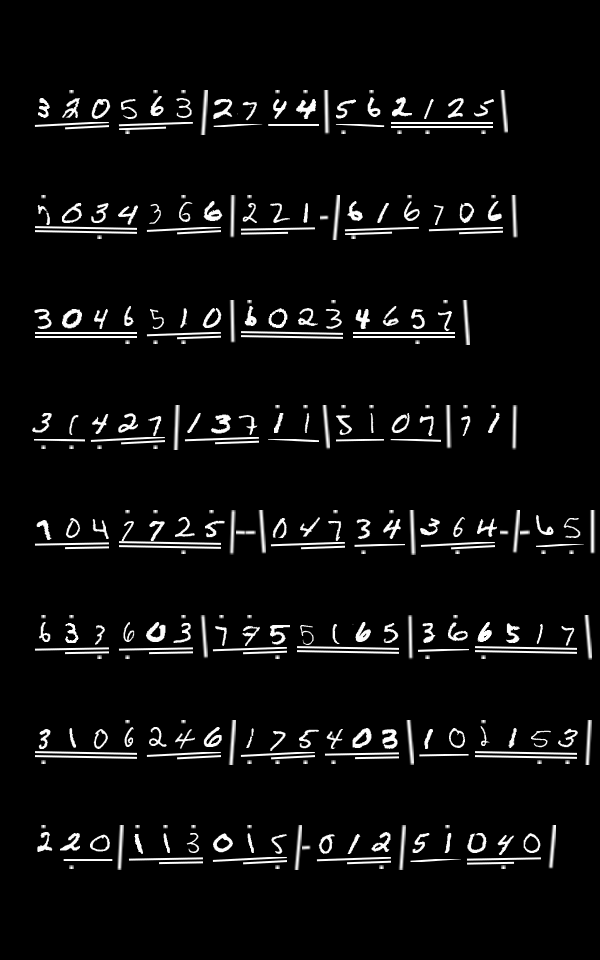 320563|2744|562125
7034366|221-|616706
3046510|60234657
31427|13711|5107|71
1047725|--|04734|364-|-65
633603|7755165|366517
3106246|175403|101153
220|113015|-012|51040